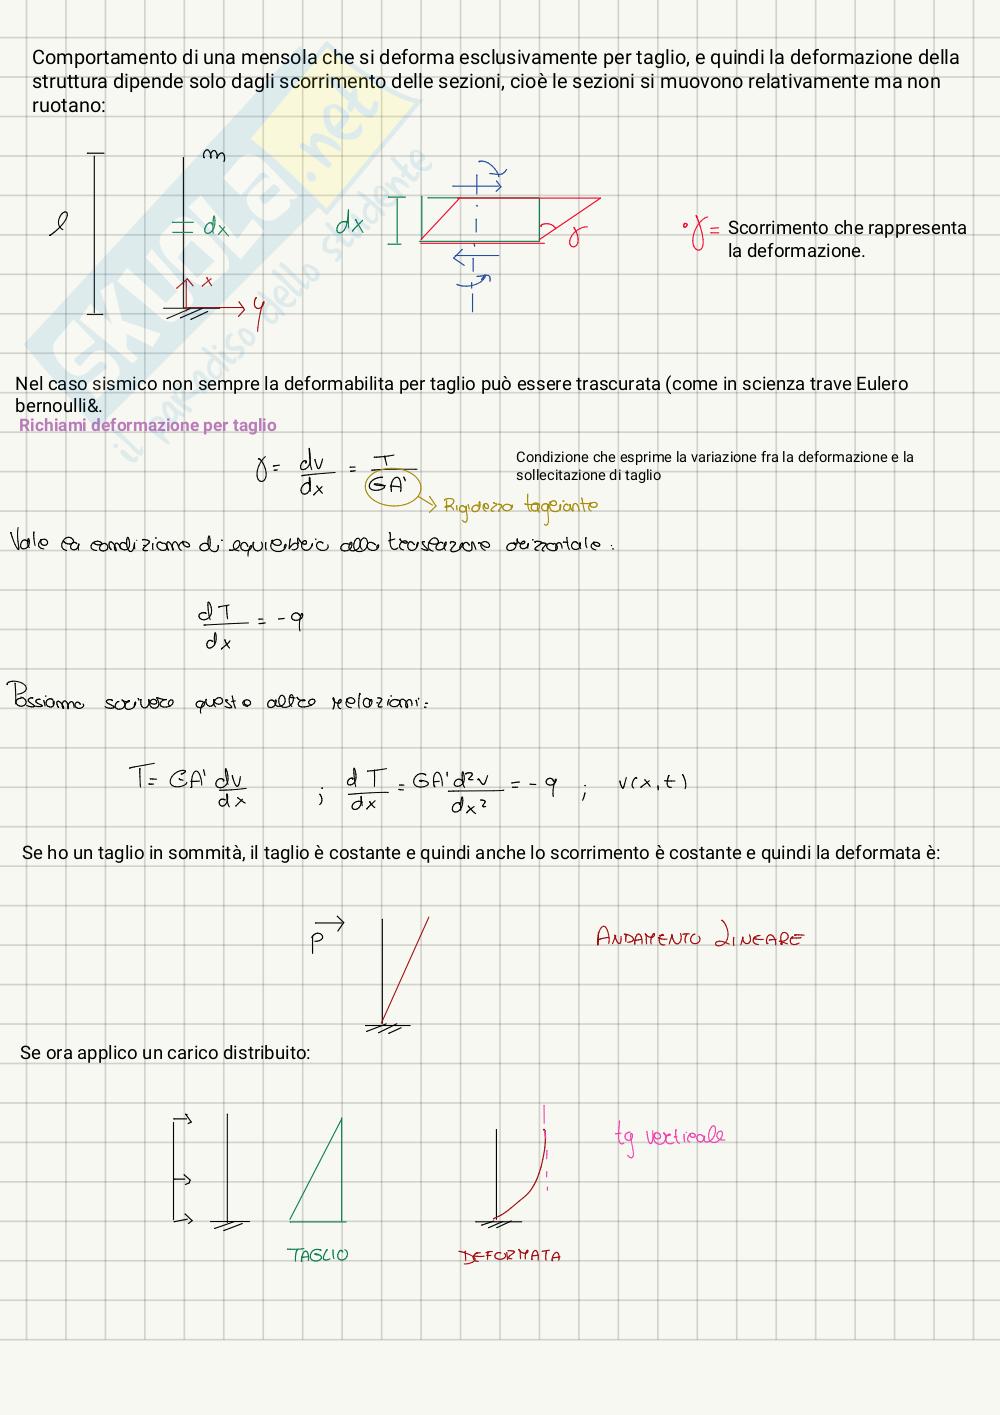 Comportamento di una mensola che si deforma esclusivamente per taglio, e quindi la deformazione della
struttura dipende solo dagli scorrimento delle sezioni, cioè le sezioni si muovono relativamente ma non
ruotano:
SKUOLA.net
il paradiso dello studente
m
l
dx
x
y
dx
γ
γ = Scorrimento che rappresenta
la deformazione.
Nel caso sismico non sempre la deformabilita per taglio può essere trascurata (come in scienza trave Eulero
bernoulli&.
Richiami deformazione per taglio
γ = dv/dx = T/GA'
Condizione che esprime la variazione fra la deformazione e la
sollecitazione di taglio
Rigidezza tagliante
Vale la condizione di equilibrio alla traslazione orizzontale:
dT/dx = -q
Possiamo scrivere queste altre relazioni:
T = GA' dv/dx ; dT/dx = GA' d²v/dx² = -q ; v(x,t)
Se ho un taglio in sommità, il taglio è costante e quindi anche lo scorrimento è costante e quindi la deformata è:
P
ANDAMENTO LINEARE
Se ora applico un carico distribuito:
tg verticale
TAGLIO
DEFORMATA